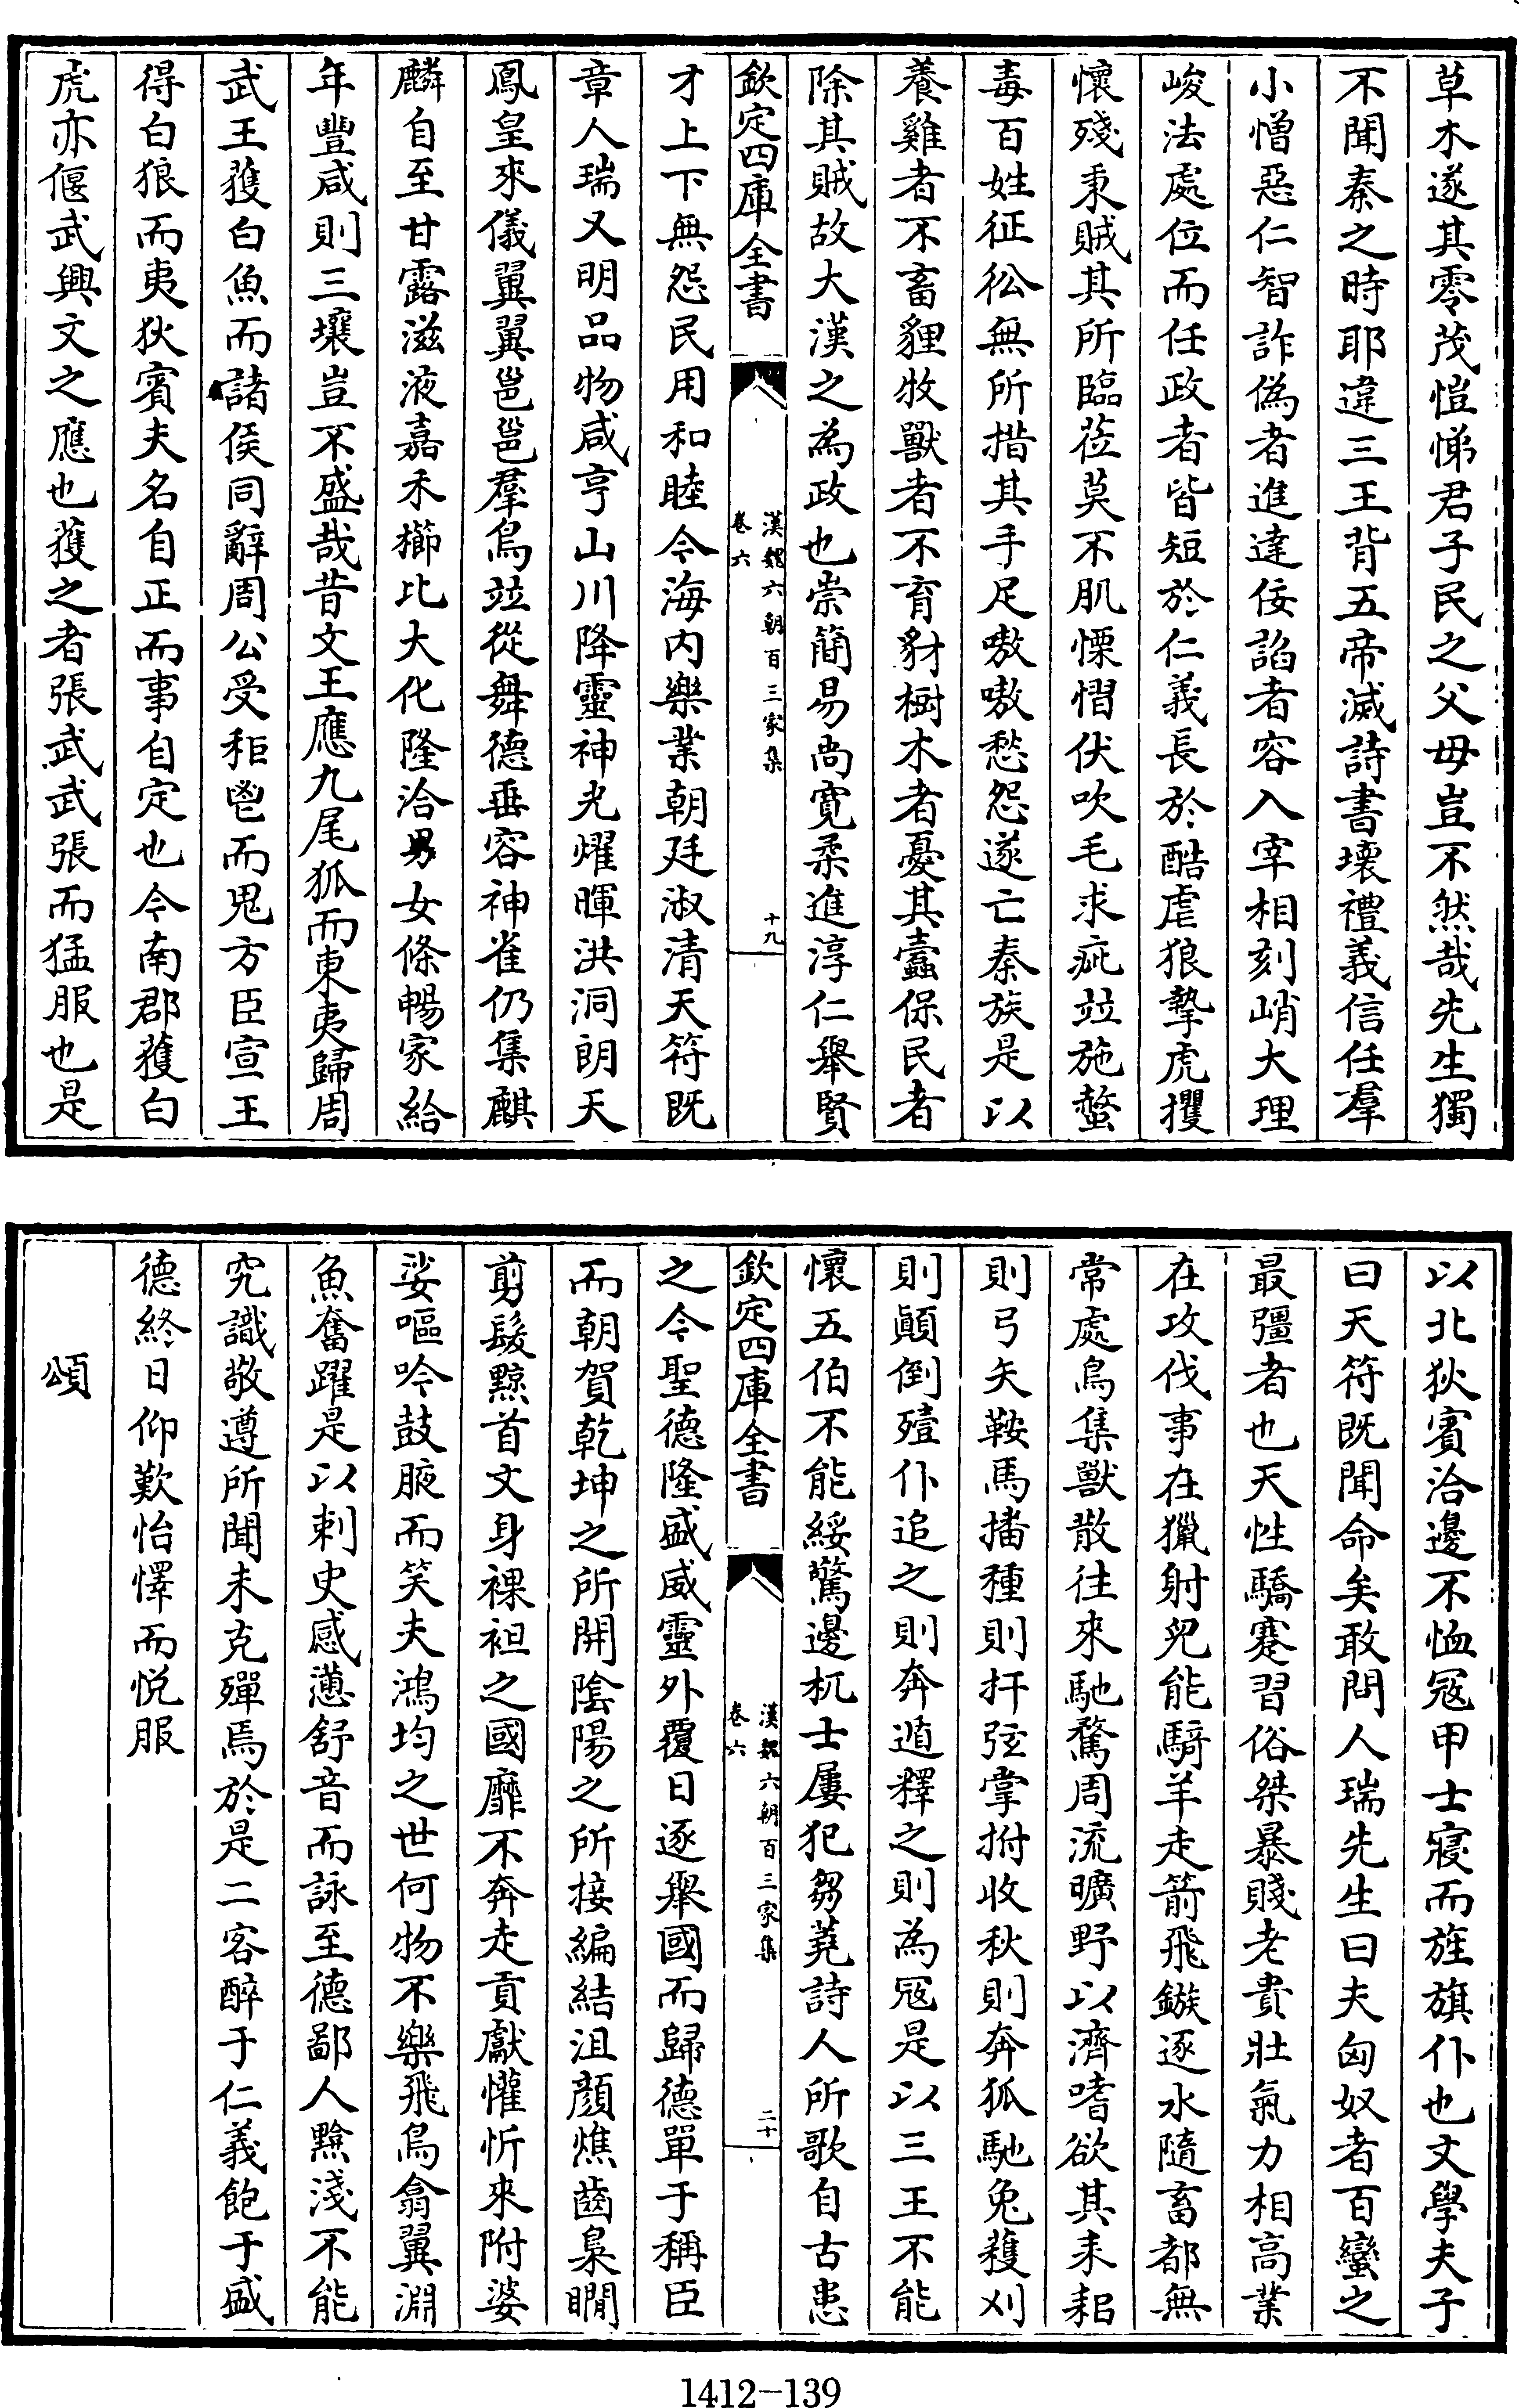 草木遂其零茂愷悌君子民之父母豈不然哉先生獨
不聞秦之時耶違三王背五帝滅詩書壞禮義信任羣
小憎惡仁智詐偽者進達佞諂者容入宰相刻峭大理
峻法處位而任政者皆短於仁義長於酷虐狼摯虎攫
懷殘秉賊其所臨莅莫不肌慄慴伏吹毛求疵竝施螫
毒百姓征彸無所措其手足嗷嗷愁怨遂亡秦族是以
養雞者不畜貍牧獸者不育豺樹木者憂其蠹保民者
除其賊故大漢之為政也崇簡易尚寬柔進淳仁舉賢
欽定四庫全書
漢魏六朝百三家集
卷六
十九
才上下無怨民用和睦今海内樂業朝廷淑清天符既
章人瑞又明品物咸亨山川降靈神光燿暉洪洞朗天
鳳皇來儀翼翼邕邕羣鳥竝從舞德垂容神雀仍集麒
麟自至甘露滋液嘉禾櫛比大化隆洽男女條暢家給
年豐咸則三壤豈不盛哉昔文王應九尾狐而東夷歸周
武王獲白魚而諸侯同辭周公受秬鬯而鬼方臣宣王
得白狼而夷狄賓夫名自正而事自定也今南郡獲白
虎亦偃武興文之應也獲之者張武武張而猛服也是
以北狄賓洽邊不恤冦甲士寢而旌旗仆也文學夫子
曰天符既聞命矣敢問人瑞先生曰夫匈奴者百蠻之
最彊者也天性驕蹇習俗桀暴賤老貴壯氣力相高業
在攻伐事在獵射兒能騎羊走箭飛鏃逐水隨畜都無
常處鳥集獸散往來馳騖周流曠野以濟嗜欲其耒耜
則弓矢鞍馬播種則扞弦掌拊收秋則奔狐馳兔穫刈
則顛倒殪仆追之則奔遁釋之則為冦是以三王不能
懷五伯不能綏驚邊杌士屢犯芻蕘詩人所歌自古患
欽定四庫全書
漢魏六朝百三家集
卷六
二十
之今聖德隆盛威靈外覆日逐舉國而歸德單于稱臣
而朝賀乾坤之所開陰陽之所接編結沮顔燋齒梟瞷
剪髮黥首文身裸袒之國靡不奔走貢獻懽忻來附婆
娑嘔吟鼓腋而笑夫鴻均之世何物不樂飛鳥翕翼淵
魚奮躍是以刺史感懣舒音而詠至德鄙人黭淺不能
究識敬遵所聞未克殫焉於是二客醉于仁義飽于盛
德終日仰歎怡懌而悦服
頌
1412—139